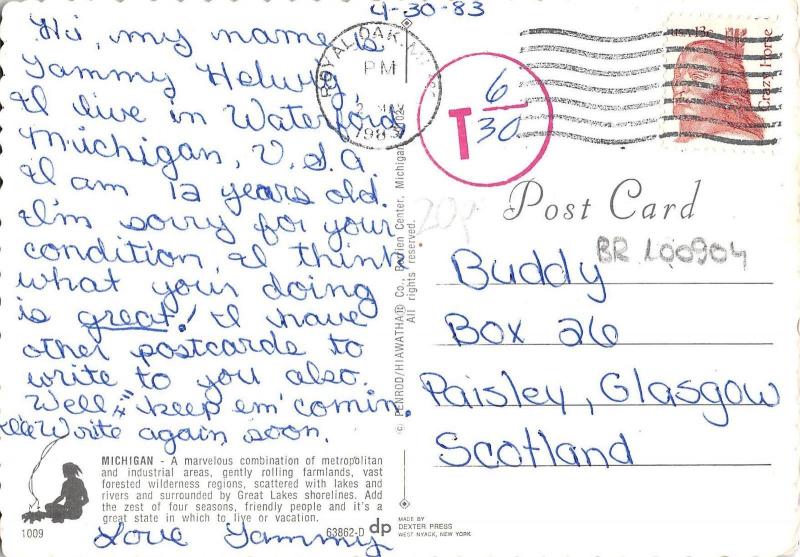 4-30-83
Hi, my name is
Tammy Helwig,
I live in Waterford,
Michigan, U.S.A.
I am 12 years old.
I'm sorry for your
condition, I think
what your doing
is great! I have
other postcards to
write to you also.
Well "keep em' comin.
I'll Write again soon.
Love Tammy
MICHIGAN - A marvelous combination of metropolitan
and industrial areas, gently rolling farmlands, vast
forested wilderness regions, scattered with lakes and
rivers and surrounded by Great Lakes shorelines. Add
the zest of four seasons, friendly people and it's a
great state in which to live or vacation.
1009
63862-D
dp
MADE BY
DEXTER PRESS
WEST NYACK, NEW YORK
© PENROD/HIAWATHA® Co., Berrien Center, Michigan
All rights reserved.
ROYAL OAK, MI
PM
2
1983
T 6/30
USA 13c
Crazy Horse
Post Card
20p
BR L00904
Buddy
Box 26
Paisley, Glasgow
Scotland